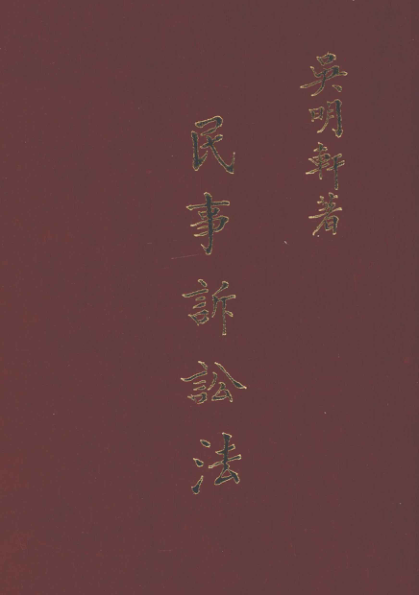 吳明軒著
民事訴訟法